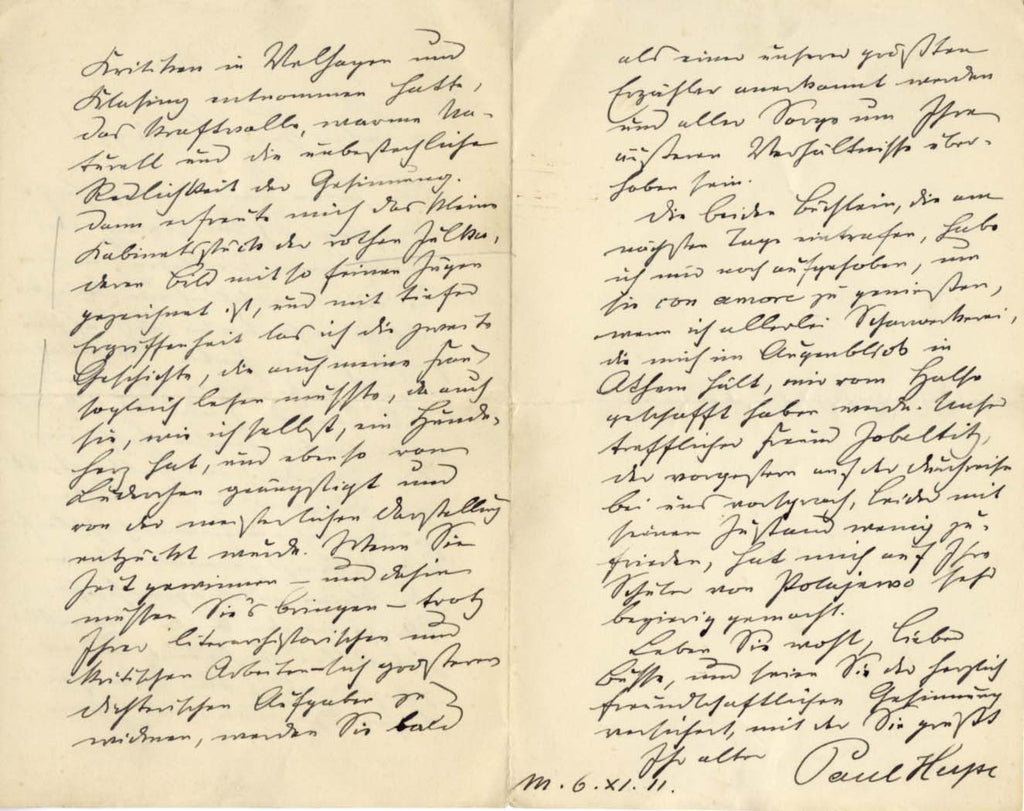 Kritiken in Velhagen und
Klasing entnommen hatte,
das kraftvolle, warme Na-
turell und die unbestechliche
Redlichkeit der Gesinnung.
Dann erfreute mich das kleine
Kabinetsstück der rothen Julka,
deren Bild mit so feinen Zügen
gezeichnet ist, und mit tiefer
Ergriffenheit las ich die zweite
Geschichte, die auch meine Frau
sogleich lesen mußste, da auch
sie, wie ich selbst, ein Hunde-
herz hat, und ebenso vom
geängstigt und
von der meisterlichen Darstellung
entzückt wurde. Wenn Sie
Zeit gewinnen – und dahin
müssen Sie's bringen – trotz
Ihrer literarhistorischen und
kritischen Arbeiten sich größeren
dichterischen Aufgaben zu
widmen, werden Sie bald
als einer unserer größten
Erzähler anerkannt werden
und aller Sorge um Ihre
äußeren Verhältnisse über-
hoben sein.
Die beiden Büchlein, die am
nächsten Tage eintrafen, habe
ich mir noch aufgehoben, um
sie con amore zu genießen,
wenn ich allerlei Scharwerkerei,
die mich im Augenblick in
Athem hält, mir vom Halse
geschafft haben werde. Unser
trefflicher Freund Zobeltitz,
der vorgestern auf der Durchreise
bei uns vorsprach, leider mit
seinem Zustand wenig zu-
frieden, hat mich auf Ihre
Schüler von Polajewo sehr
begierig gemacht.
Leben Sie wohl, lieber
Busse, und seien Sie der herzlich
freundschaftlichen Gesinnung
versichert, mit der Sie grüßt
Ihr alter Paul Heyse
M. 6. XI. 11.